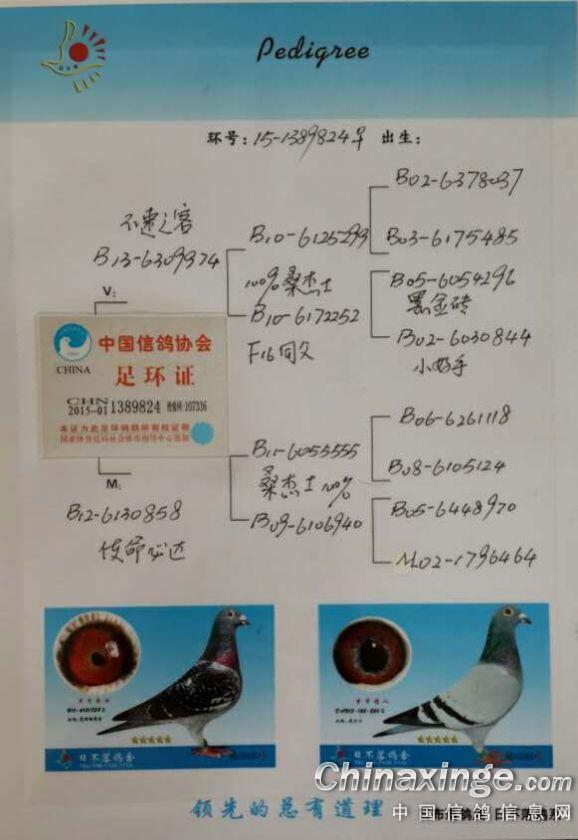 Pedigree
环号：15-1389824 ♀ 出生：
B02-6378037
不速之客
B10-6125299
B03-6175485
B13-6309374
100%桑杰士
B05-6054296
黑金砖
V:
B10-6172252
B02-6030844
F16同父
小好手
中国信鸽协会
CHINA
足环证
CHN
2015-01 1389824
本证为此足环鸽的所有权证明
B06-6261118
B11-6055555
B08-6105124
M:
桑杰士100%
B12-6130858
B09-6106940
B05-6448970
使命必达
M02-1796464
日不落鸽舍
日不落鸽舍
Chinaxinge.com
领先的总有道理
中国信鸽信息网